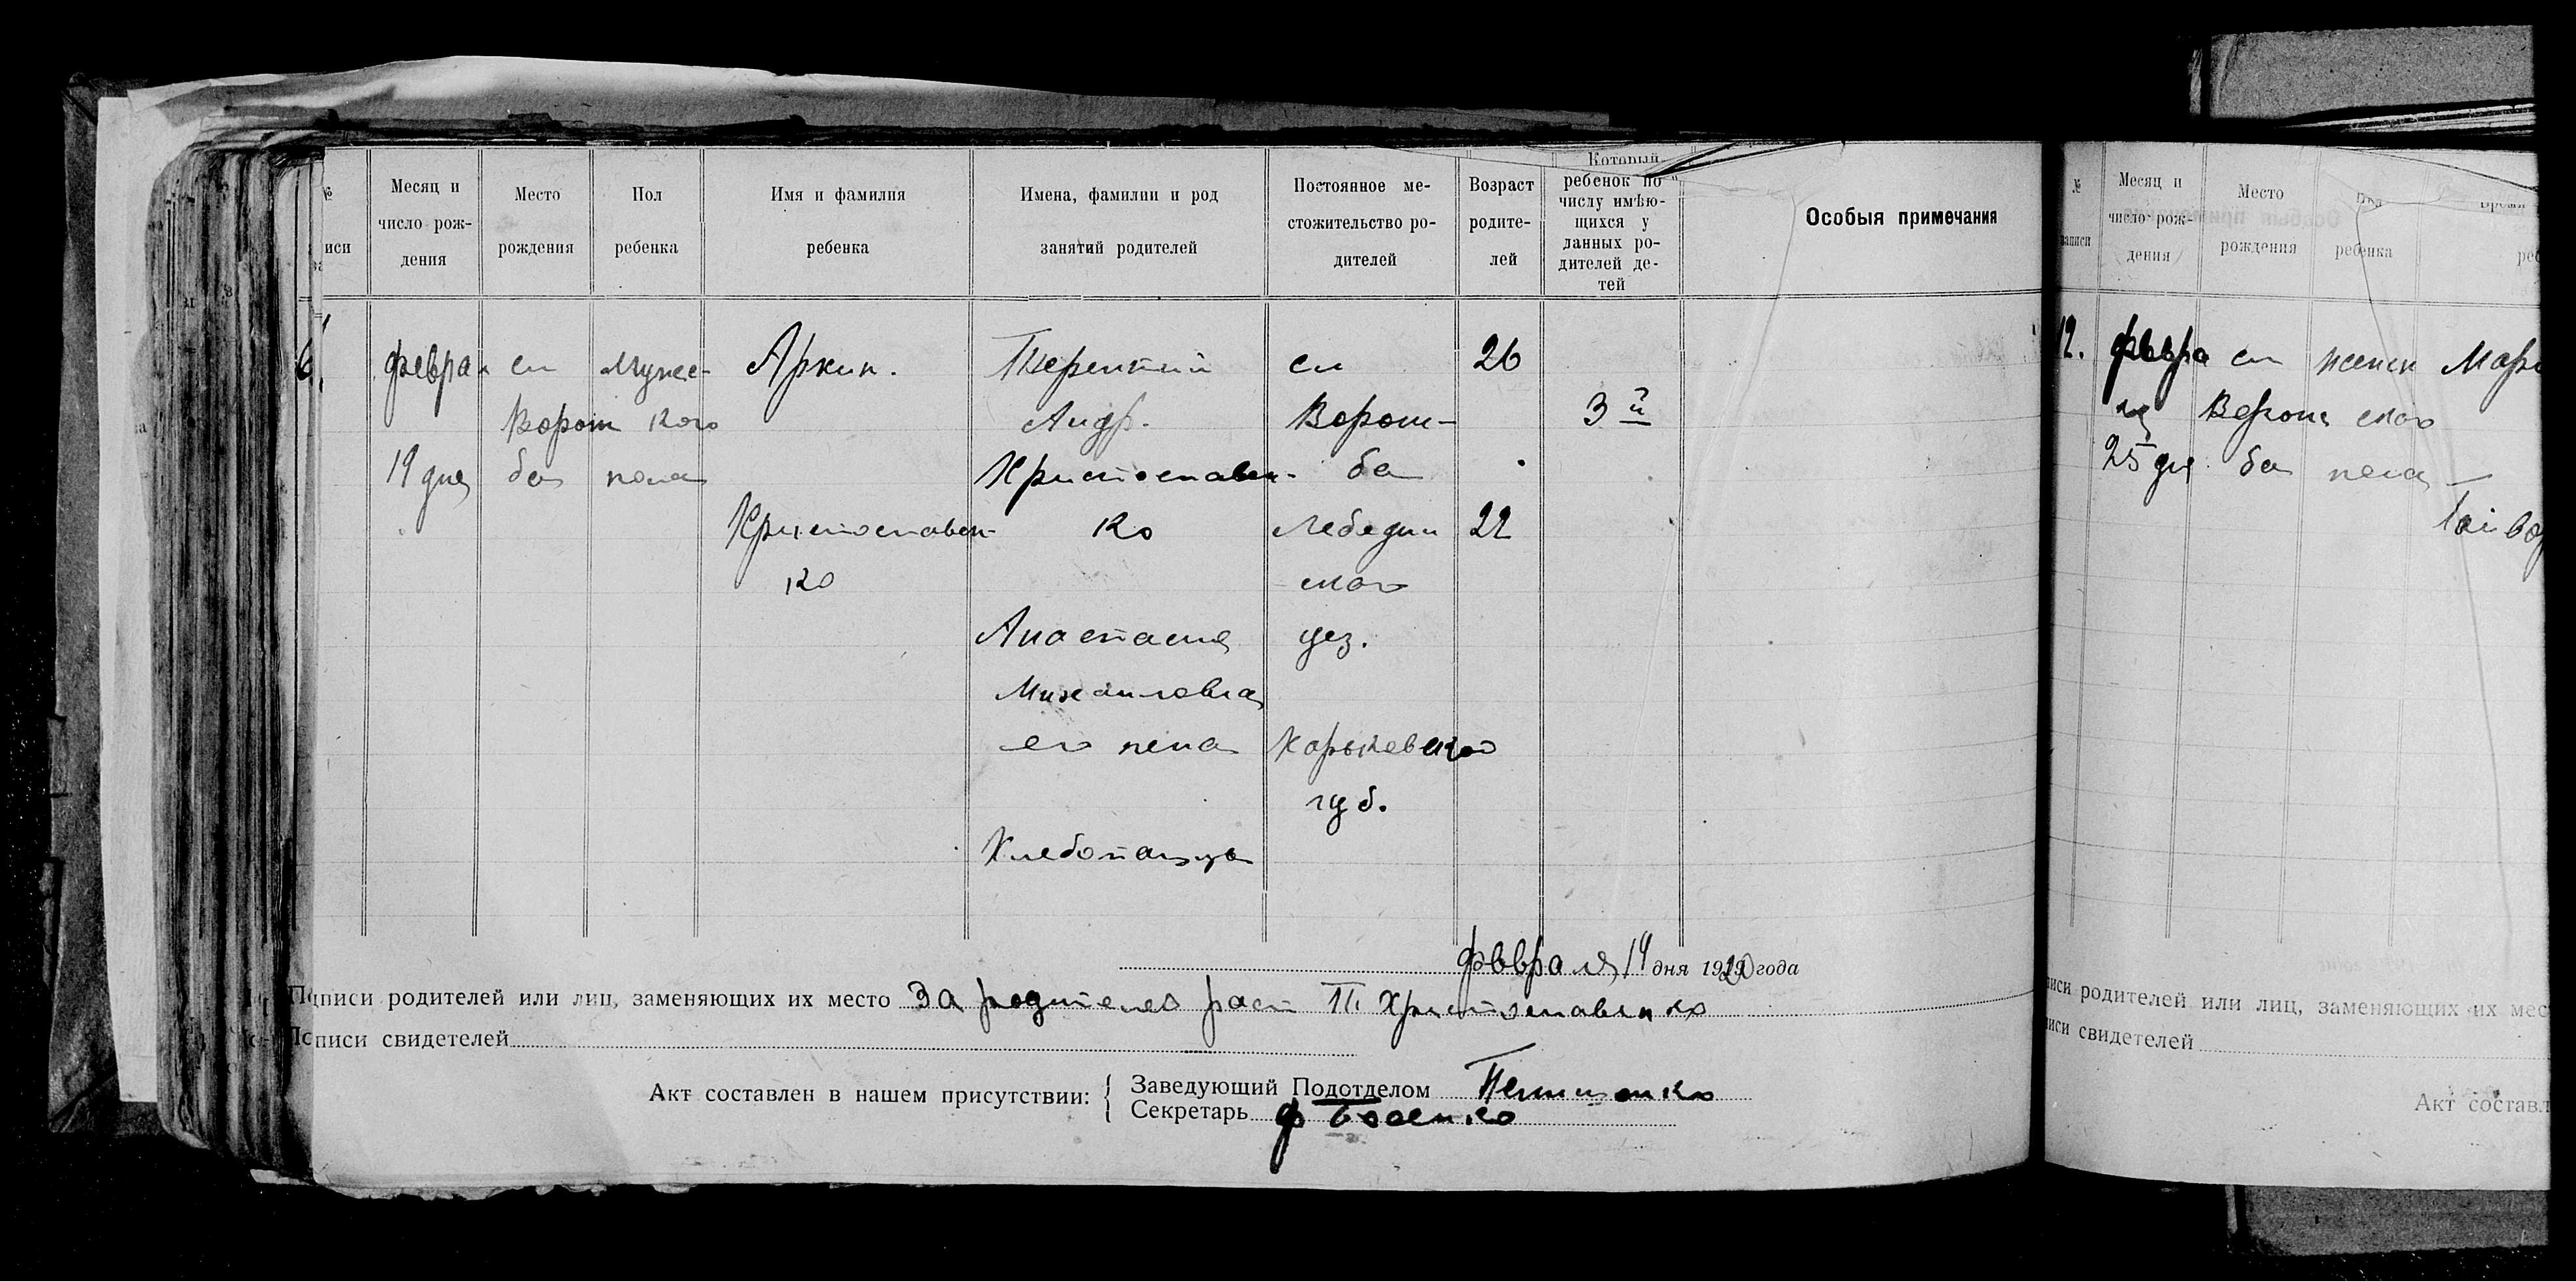 №
иси
Месяц и
число рож-
дения
Место
рождения
Пол
ребенка
Имя и фамилия
ребенка
Имена, фамилии и род
занятий родителей
Постоянное ме-
стожительство ро-
дителей
Возраст
родите-
лей
Который
ребенок по
числу имѣю-
щихся у
данных ро-
дителей де-
тей
Особыя примечания
6.
февра
19 дня
сл
Ворож
ба
мужес-
кого
пола
Аркип.
Христославен-
ко
Терентий
Андр.
Христославен-
ко
Анастасия
Михаиловна
его жена
Хлебопашцы
сл
Ворож-
ба
Лебедин
ского
уез.
Харьковской
губ.
26
22
3й
февраля 19 дня 1920 года
Подписи родителей или лиц, заменяющих их место За родителей расп Т Христославенко
Подписи свидетелей
Акт составлен в нашем присутствии:
Заведующий Подотделом
Секретарь
№
записи
Месяц и
число рож-
дения
Место
рождения
Пол
ребенка
реб
12.
февра
ля
25 дня
сл
Ворож
ба
женск
ского
пола
Мари
писи родителей или лиц, заменяющих их мес
писи свидетелей
Акт составл